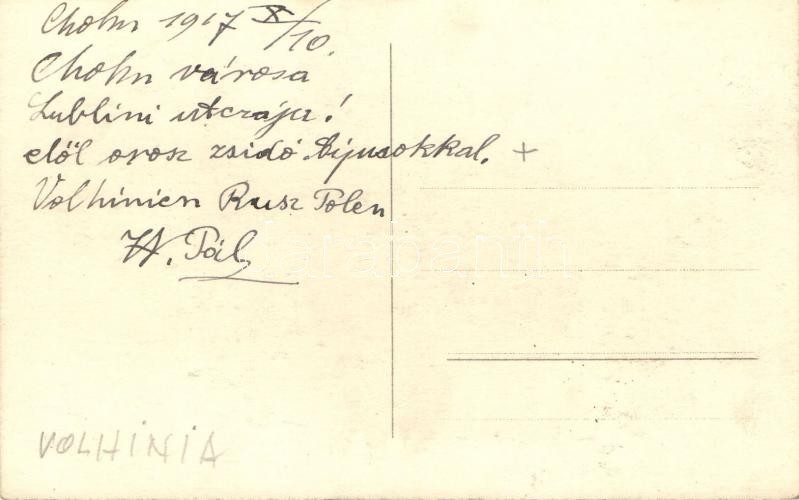 Cholm 1917 X/10.
Cholm városa
Lublini utczája!
elől orosz zsidó tipusokkal. +
Volhinien Rusz Polen
Pál
VOLHINIA
darabanth